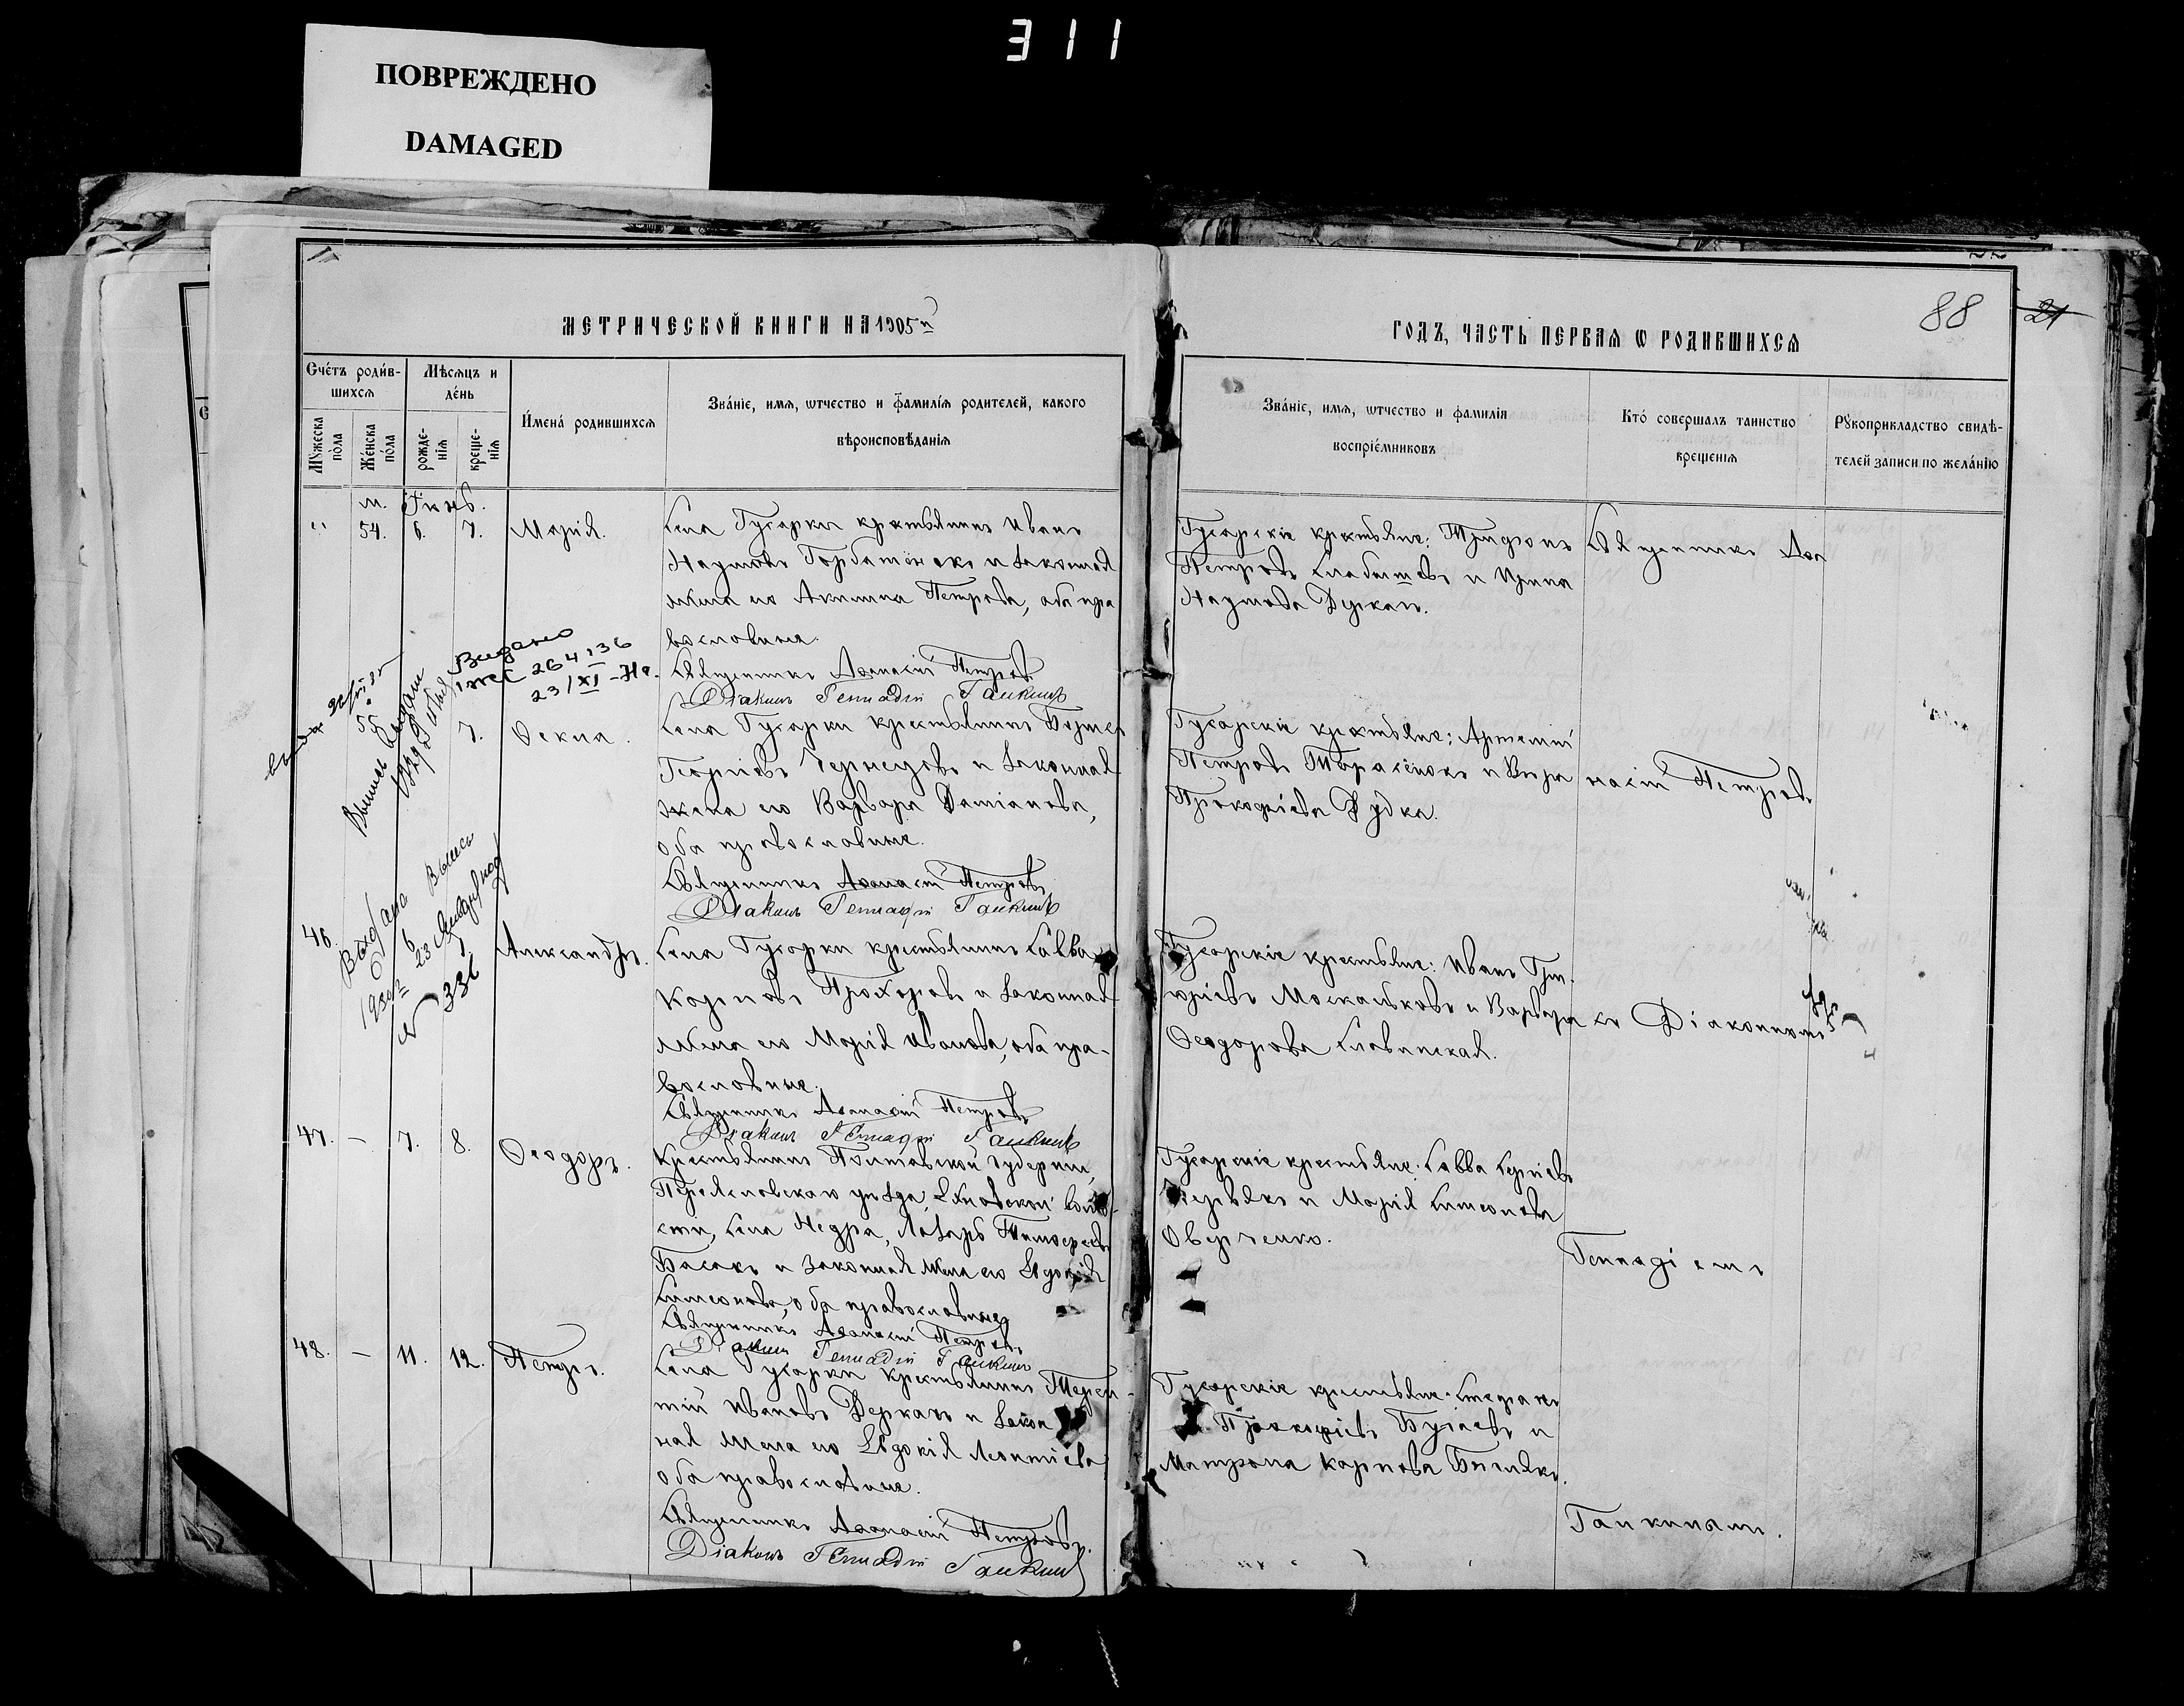 311
ПОВРЕЖДЕНО
DAMAGED
88
21
МЕТРИЧЕСКОЙ КНИГИ НА 1905 й
ГОДЪ, ЧАСТЬ ПЕРВАЯ Ѡ РОДИВШИХСЯ
Счётъ родив-
шихся
Мѣсяцъ и
день
Мужеска
пола
Женска
пола
рожде-
нія
креще-
нія
Имена родившихся
Званіе, имя, ѡтчество и фамилія родителей, какого
вѣроисповѣданія
Званіе, имя, ѡтчество и фамилія
воспріемниковъ
Кто совершалъ таинство
крещенія
Рукоприкладство свидѣ-
телей записи по желанію
м. Янв.
" 54. 6. 7. Марія.
Села Гусарки крестьянинъ Иванъ
Наумовъ Горбатёнокъ и законная
жена его Акилина Петрова, оба пра
вославные.
Священникъ Аѳанасій Петровъ
Діаконъ Генадій Галкинъ
Гусарскіе крестьяне: Трифонъ
Петровъ Слабышевъ и Ирина
Наумова Деркачъ.
Священникъ Аѳа
Видано
264136
23/XI-
55 7. Ѳекла.
Села Гусарки крестьянинъ
Георгіевъ Чернецовъ и законная
жена его Варвара Даміанова,
оба православные.
Священникъ Аѳанасій Петровъ
Діаконъ Генадій Галкинъ
Гусарскіе крестьяне: Артемій
Петровъ Тарасёнокъ и Вѣра
Прокофіева Рудка.
насій Петровъ
Выдана Выпись
23 Января
№ 336
46. 6 7 Александръ.
Села Гусарки крестьянинъ Савва
Карповъ Прохоровъ и законная
жена его Марія Иванова, оба пра-
вославные.
Священникъ Аѳанасій Петровъ
Діаконъ Генадій Галкинъ
Гусарскіе крестьяне: Иванъ Гри-
горіевъ Москальковъ и Варвара
Ѳеодорова Словинская.
съ Діакономъ
47. — 7. 8. Ѳеодоръ.
Крестьянинъ Полтавской губерніи,
Переяславскаго уѣзда, воло-
сти, села Недра, Лазарь Тимоѳеевъ
Басакъ и законная жена его Евдокія
Симеонова, оба православные
Священникъ Аѳанасій Петровъ
Діаконъ Генадій Галкинъ
Гусарскіе крестьяне: Савва Сергіевъ
и Марія Симеонова
Оверченко.
Геннадіемъ
48. — 11. 12. Петръ.
Села Гусарки крестьянинъ Терен-
тій Ивановъ Деркачъ и закон
ная жена его Евдокія Леонтіева
оба православные.
Священникъ Аѳанасій Петровъ.
Діаконъ Генадій Галкинъ
Гусарскіе крестьяне: Стефанъ
Прокофіевъ Бугаевъ и
Матрона Карпова
Галкинымъ.